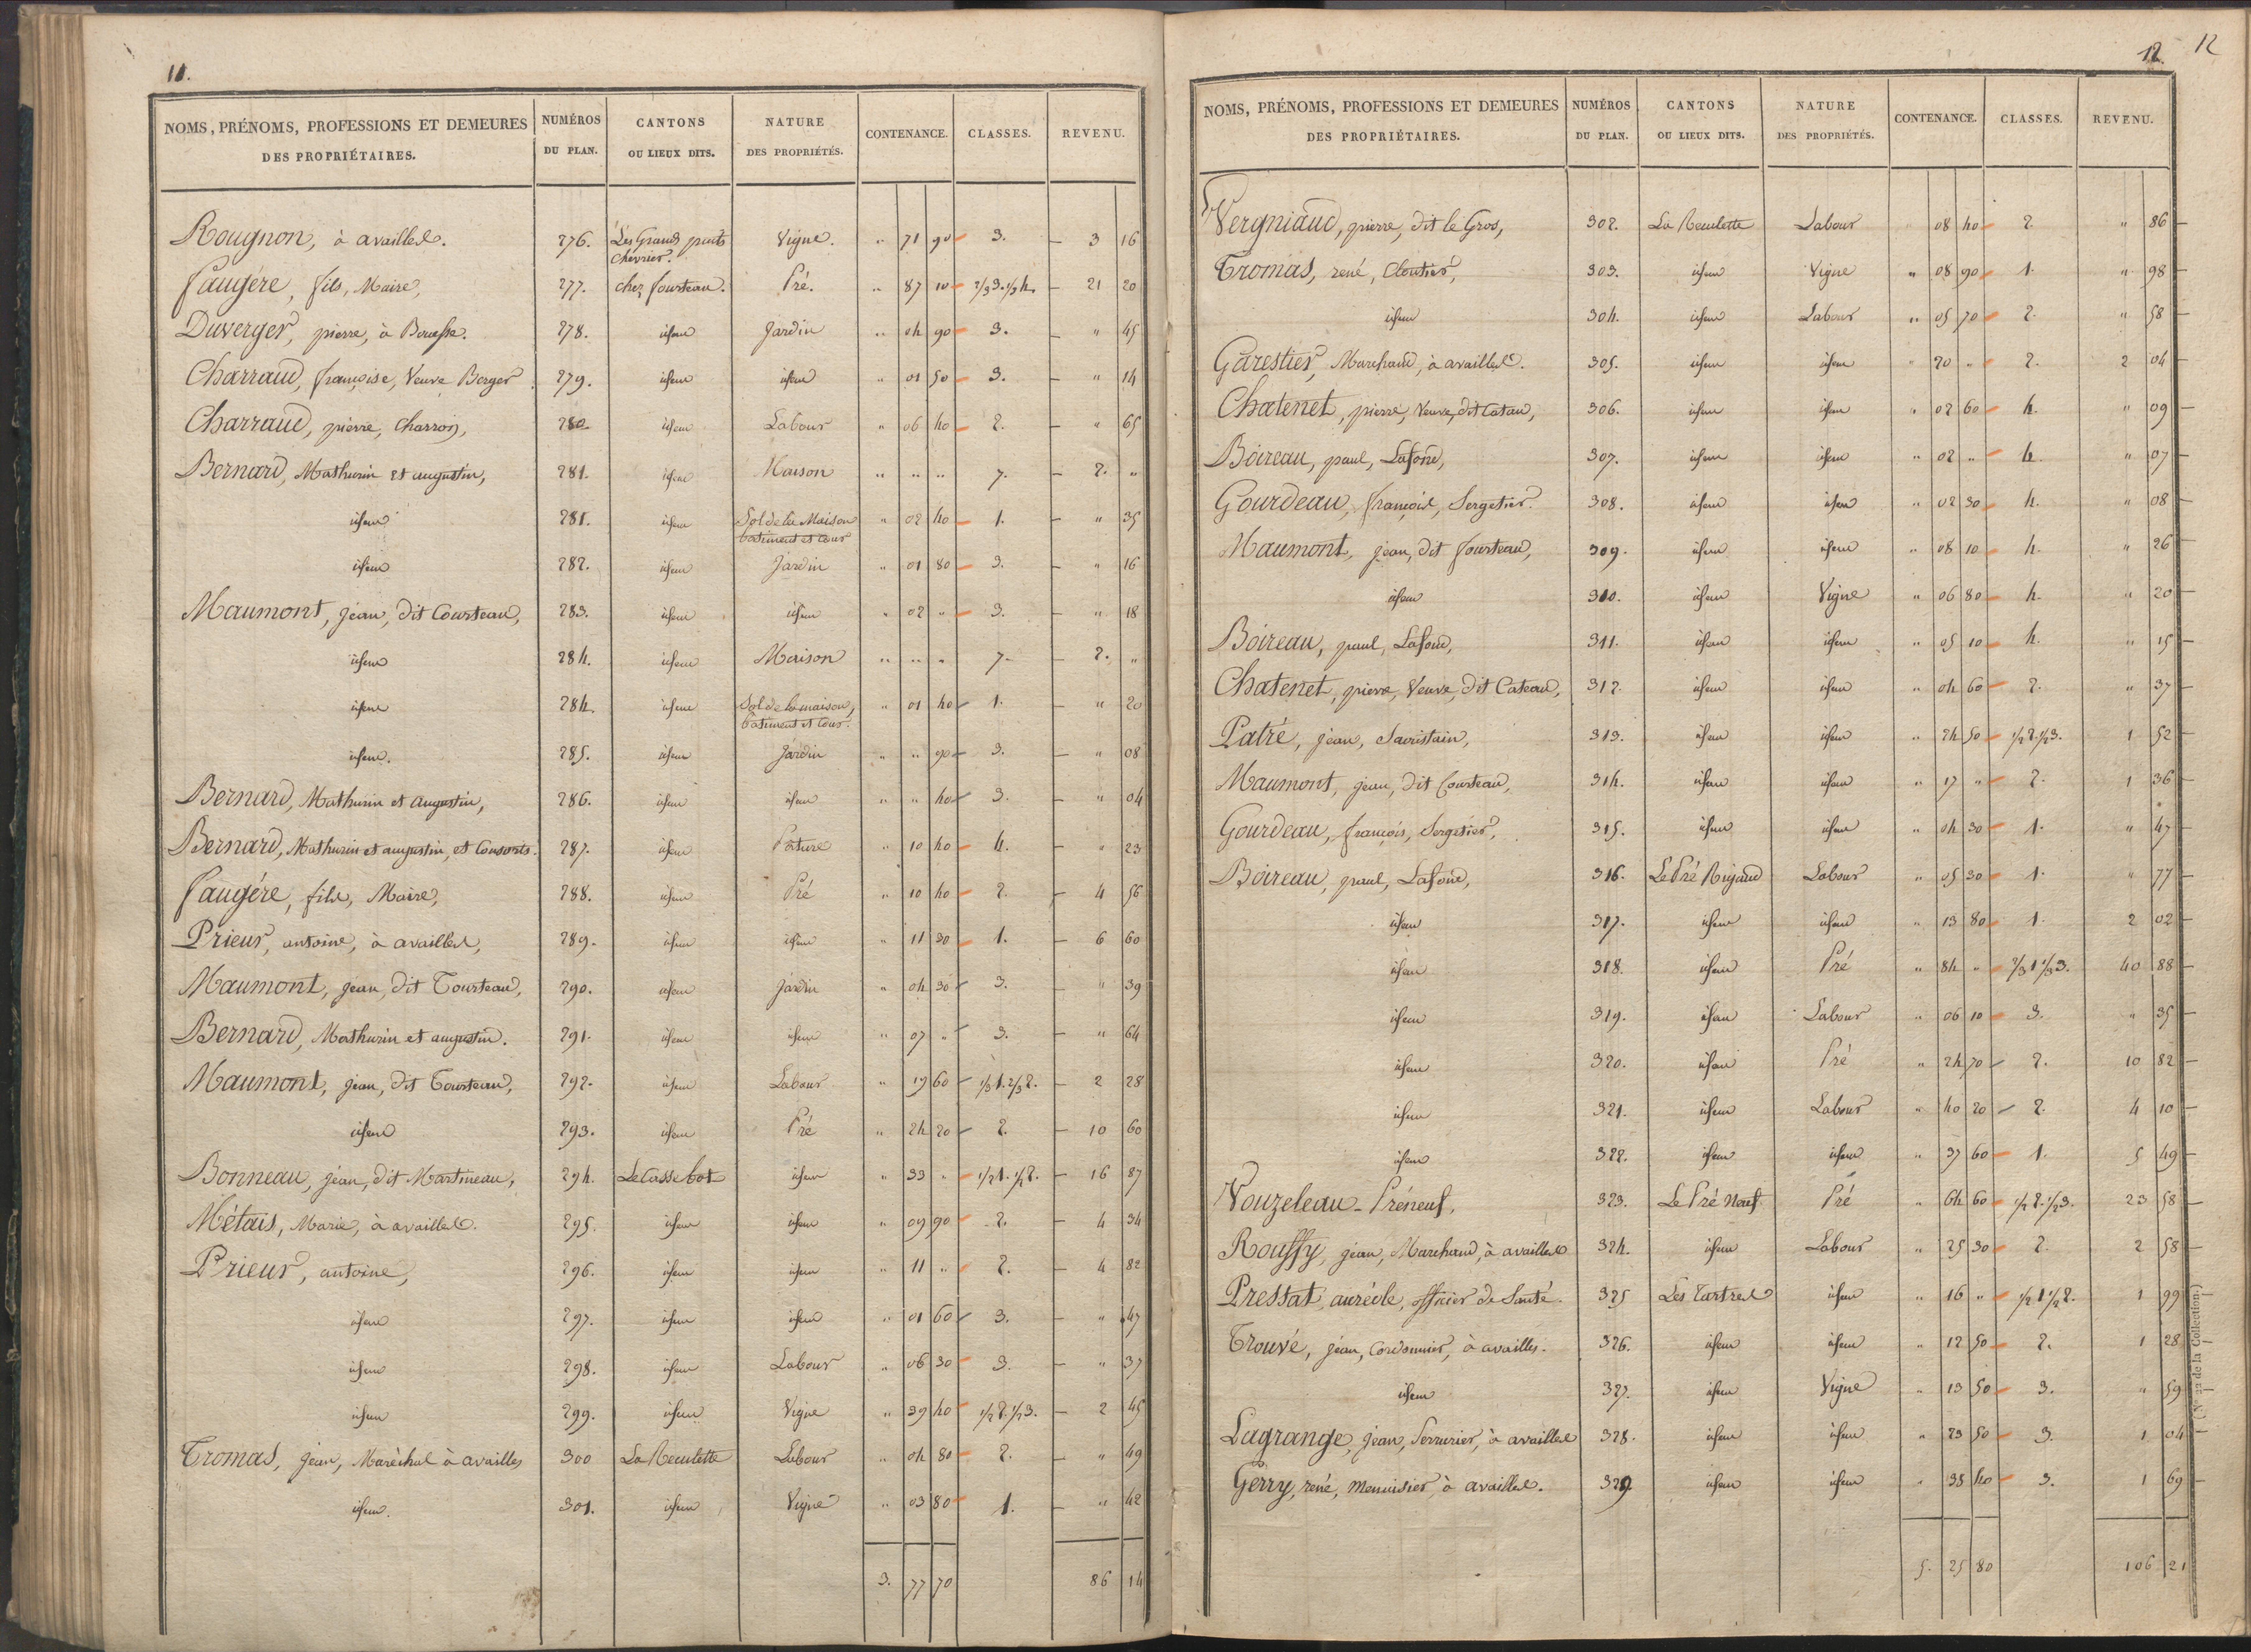 11.
NOMS, PRÉNOMS, PROFESSIONS ET DEMEURES DES PROPRIÉTAIRES. NUMÉROS DU PLAN. CANTONS OU LIEUX DITS. NATURE DES PROPRIÉTÉS. CONTENANCE. CLASSES. REVENU.
Rougnon, à availles. 276. Les Grands puits chevrier. Vigne. " 71 90 3. 3 16
faugére, fils, Maire, 277. chez fourteau. Pré. " 87 10 2/3 3. 1/3 4. 21 20
Duverger, pierre, à Bouesse. 278. idem Jardin " 04 90 3. " 45
Charraud, françoise, Veuve Berger 279. idem idem " 01 50 3. " 14
Charraud, pierre, Charron, 280 idem Labour " 06 40 2. " 65
Bernard, Mathurin et augustin, 281. idem Maison " " " 7. 2. "
idem 281. idem Sol de la Maison batiment et Cour " 02 40 1. " 35
idem 282. idem Jardin " 01 80 3. " 16
Maumont, jean, dit Courteau, 283. idem idem " 02 " 3. " 18
idem 284. idem Maison " " " 7. 2. "
idem 284. idem Sol de la maison, batiment et Cour. " 01 40 1. " 20
idem. 285. idem Jardin " " 90 3. " 08
Bernard, Mathurin et augustin, 286. idem idem " " 40 3. " 04
Bernard, Mathurin et augustin, et Consorts. 287. idem Pature " 10 40 4. " 23
faugére, fils, Maire, 288. idem Pré " 10 40 2. 4 56
Prieur, antoine, à availles, 289. idem idem " 11 30 1. 6 60
Maumont, jean, dit Tourteau, 290. idem Jardin " 04 30 3. " 39
Bernard, Mathurin et augustin. 291. idem idem " 07 " 3. " 64
Maumont, jean, dit Tourteau, 292. idem Labour " 19 60 1/3 1. 2/3 2. 2 28
idem 293. idem Pré " 24 20 2. 10 60
Bonneau, jean, dit Martineau, 294. Le Casse bot idem " 33 " 1/2 1. 1/2 2. 16 87
Métais, Marie, à availles. 295. idem idem " 09 90 2. 4 34
Prieur, antoine, 296. idem idem " 11 " 2. 4 82
idem 297. idem idem " 01 60 3. " 47
idem 298. idem Labour " 06 30 3. " 37
idem 299. idem Vigne " 39 40 1/2 2. 1/2 3. 2 45
Tromas, jean, Maréchal à availles 300 La Reculette Labour " 04 80 2. " 49
idem. 301. idem Vigne " 03 80 1. " 42
3. 77 70 86 14
12. 12
NOMS, PRÉNOMS, PROFESSIONS ET DEMEURES DES PROPRIÉTAIRES. NUMÉROS DU PLAN. CANTONS OU LIEUX DITS. NATURE DES PROPRIÉTÉS. CONTENANCE. CLASSES. REVENU.
Vergniaud, pierre, dit le Gros, 302. La Reculette Labour " 08 40 2. " 86
Tromas, rené, Cloutier, 303. idem Vigne " 08 90 1. " 98
idem 304. idem Labour " 05 70 2. " 58
Garestier, Marchand, à availles. 305. idem idem " 20 " 2. 2 04
Chatenet, pierre, Veuve, dit Catau, 306. idem idem " 02 60 4. " 09
Boireau, paul, Lafond, 307. idem idem " 02 " 4. " 07
Gourdeau, françois, Sergetier. 308. idem idem " 02 30 4. " 08
Maumont, jean, dit fourteau, 309. idem idem " 08 10 4. " 26
idem 310. idem Vigne " 06 80 4. " 20
Boireau, paul, Lafond, 311. idem idem " 05 10 4. " 15
Chatenet, pierre, Veuve, dit Cateau, 312. idem idem " 04 60 2. " 37
Patré, jean, Sacristain, 313. idem idem " 24 50 1/2 2. 1/2 3. 1 52
Maumont, jean, dit Courteau, 314. idem idem " 17 " 2. 1 36
Gourdeau, françois, Sergetier, 315. idem idem " 04 30 1. " 47
Boireau, paul, Lafond, 316. Le Pré Rigaud Labour " 05 30 1. " 77
idem 317. idem idem " 13 80 1. 2 02
idem 318. idem Pré " 84 " 2/3 1 1/3 3. 40 88
idem 319. idem Labour " 06 10 3. " 35
idem 320. idem Pré " 24 70 2. 10 82
idem 321. idem Labour " 40 20 2. 4 10
idem 322. idem idem " 37 60 1. 5 49
Vouzeleau-Préneuf, 323. Le Pré Neuf Pré " 64 60 1/2 2. 1/2 3. 23 58
Rouffy, jean, Marchand, à availles 324. idem Labour " 25 30 2. 2 58
Pressat, aurècle, officier de Santé. 325 Les Tartres idem " 16 " 1/2 1 1/2 2. 1 99
Trouvé, jean, Cordonnier, à availles. 326. idem idem " 12 50 2. 1 28
idem 327. idem Vigne " 13 50 3. " 59
Lagrange, jean, Serrurier, à availles 328. idem idem " 23 50 3. 1 04
Gerry, rené, menuisier, à availles. 329 idem idem " 38 40 3. 1 69
5. 25 80 106 21